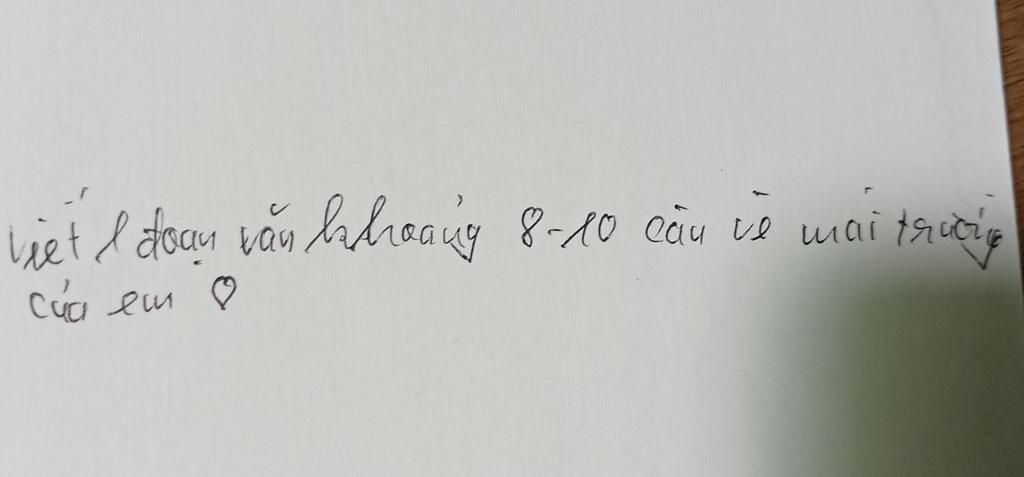 Viết 1 đoạn văn khoảng 8-10 câu về mái trường
của em ♡